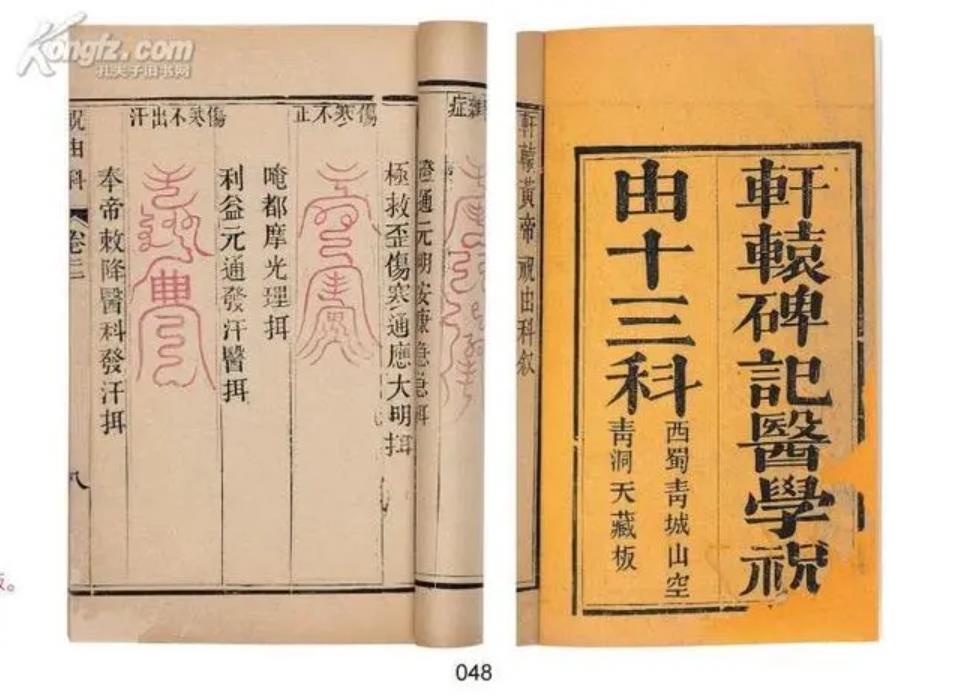 Kongfz.com
孔夫子旧书网
軒轅碑記醫學祝
由十三科
西蜀青城山空
青洞天藏板
軒轅黃帝祝由科叙
雜症
通元明安康急急挕
極救歪傷寒通應大明挕
傷寒不止
唵都摩光理挕
利益元通發汗醫挕
傷寒不出汗
奉帝敕降醫科發汗挕
祝由科
卷二
八
板。
048